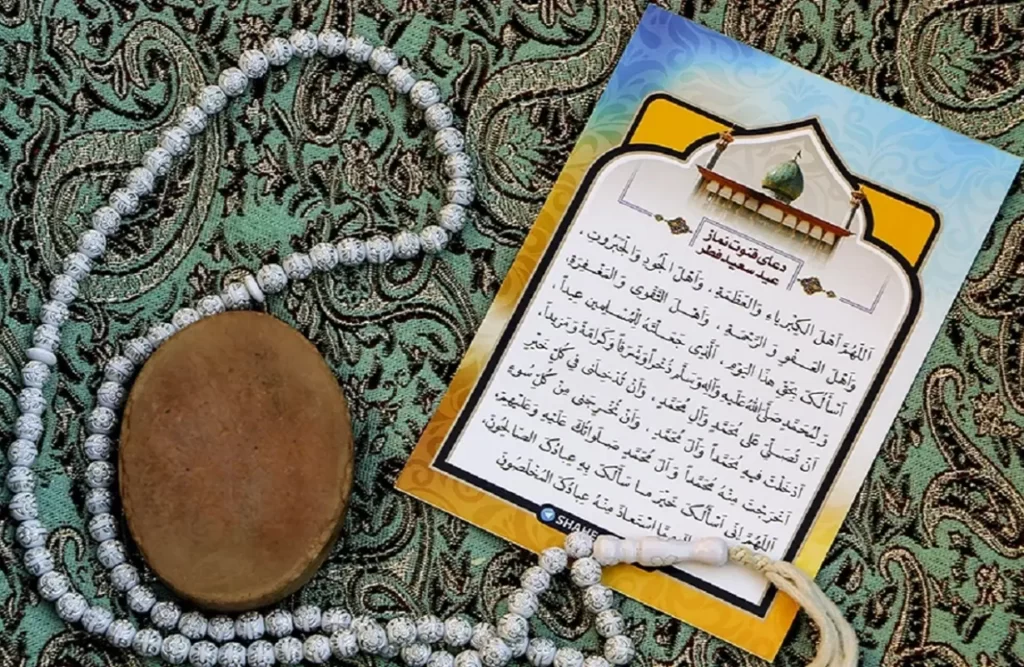 دعای قنوت نماز
عید سعید فطر
اَللّهُمَّ اَهْلَ الْكِبْرِیاءِ وَالْعَظَمَةِ ، وَاَهْلَ الْجُودِ وَالْجَبَرُوتِ ،
وَاَهْلَ الْعَفْوِ وَ الرَّحْمَةِ ، وَاَهْلَ التَّقْوی وَ الْمَغْفِرَةِ،
اَسْأَلُكَ بِحَقِّ هذَا الْیَومِ ، اَلَّذِی جَعَلْتَهُ لِلْمُسْلِمینَ عیداً ،
وَلِمُحَمَّدٍ صَلَّی اللهُ عَلَیْهِ وَآلِهِ وَسَلَّم ذُخْراً وَشَرَفاً وَكَرامَةً وَ مَزیداً،
اَنْ تُصَلِّیَ عَلی مُحَمَّدٍ وَآلِ مُحَمَّدٍ ، وَاَنْ تُدْخِلَنی فی كُلِّ خَیْرٍ
اَدْخَلْتَ فیهِ مُحَمَّداً وَآلَ مُحَمَّدٍ ، وَاَنْ تُخْرِجَنی مِنْ كُلِّ سُوءٍ
اَخْرَجْتَ مِنْهُ مُحَمَّداً وَ آلَ مُحَمَّدٍ صَلَواتُكَ عَلَیْهِ وَعَلَیْهِمْ،
اَللّهُمَّ اِنّی اَسْأَلُكَ خَیْرَ ما سَأَلَكَ بِهِ عِبادُكَ الصّالِحُونَ،
اسْتَعاذَ مِنْهُ عِبادُكَ الْمُخْلَصُونَ